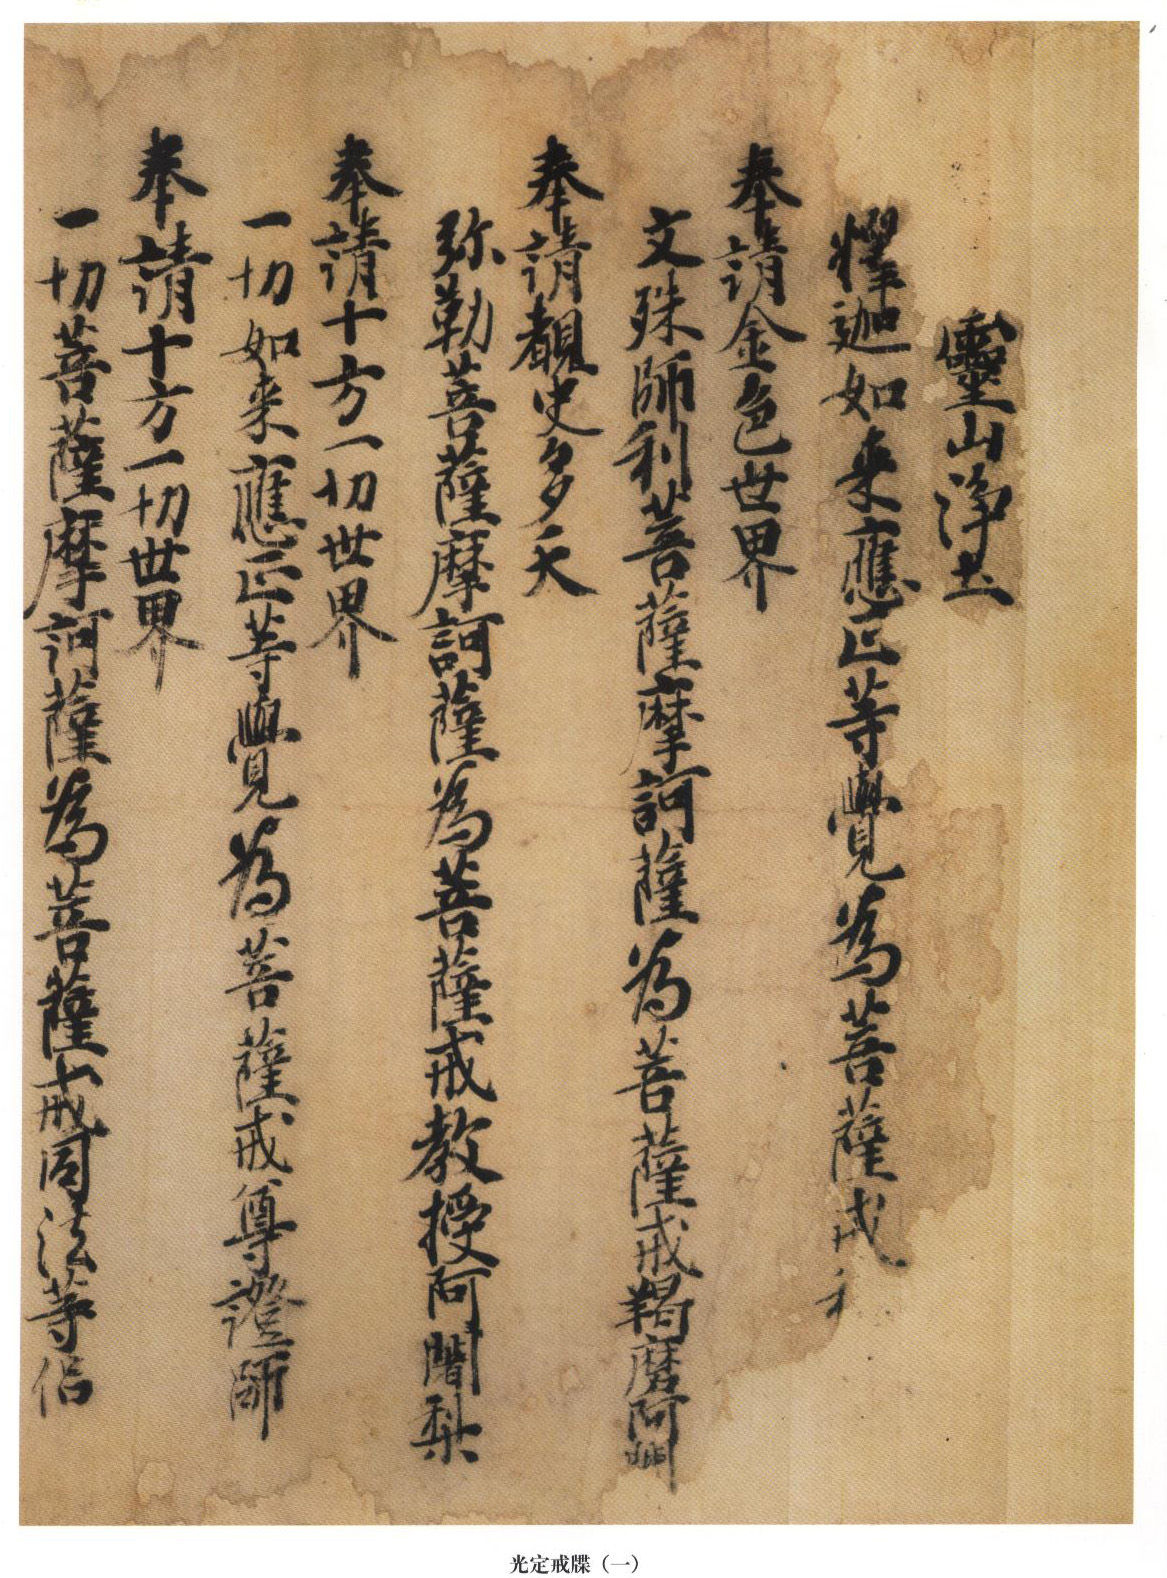 靈山浄土
釋迦如来應正等覺為菩薩戒和
奉請金色世界
文殊師利菩薩摩訶薩為菩薩戒羯磨阿闍
奉請覩史多天
弥勒菩薩摩訶薩為菩薩戒教授阿闍梨
奉請十方一切世界
一切如来應正等覺為菩薩戒尊證師
奉請十方一切世界
一切菩薩摩訶薩為菩薩戒同法等侣
光定戒牒（一）